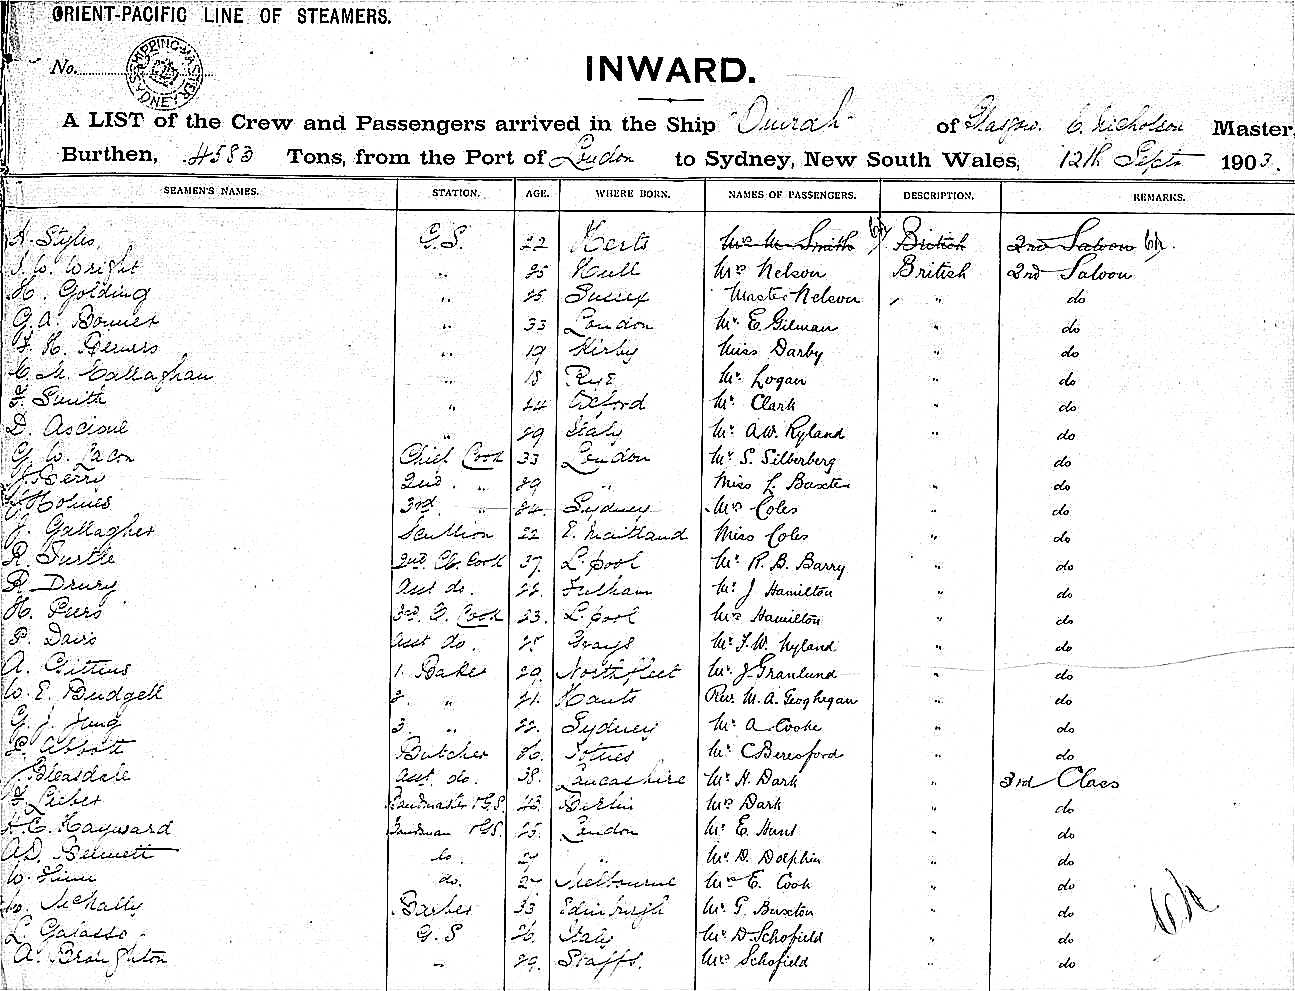 ORIENT-PACIFIC LINE OF STEAMERS.
No.
SHIPPING MASTER SYDNEY
INWARD.
A LIST of the Crew and Passengers arrived in the Ship "Omrah" of Glasgow. C. Nicholson Master,
Burthen, 4583 Tons, from the Port of London to Sydney, New South Wales, 12th Sept 1903.
SEAMEN'S NAMES. STATION. AGE. WHERE BORN. NAMES OF PASSENGERS. DESCRIPTION. REMARKS.
A. Styles, G.S. 22 Herts Mr M. Smith British 2nd Saloon
J. W. Wright " 25 Hull Mrs Nelson British 2nd Saloon
H. Golding " 25 Sussex Master Nelson " do
G. A. Bonner " 33 London Mr E. Gilman " do
F. H. " 19 Kirby Miss Darby " do
C. M. Callaghan " 18 Rye Mr Logan " do
Smith " 24 Oxford Mr Clark " do
D. Ascione " 29 Italy Mr A.W. Ryland " do
G. W. Lacon Chief Cook 33 London Mr S. Silberberg do
Berry 2nd " 29 " Miss L. Buxton " do
Holmes 3rd " 24 Sydney Mrs Coles " do
J. Gallagher Scullion 22 E. Maitland Miss Coles " do
R. Surtle 2nd Cook 37 L.pool Mr R. B. Barry " do
R. Drury Asst do. 22 Fulham Mr J Hamilton " do
H. Piers 3rd Cook 23 L.pool Mrs Hamilton " do
P. Davis Asst do. 25 Grays Mr F. W. Nyland " do
A. Gittins 1. Baker 29 Northfleet Mr J. Granlund " do
W. E. Budgett 2. " 21. Hants Rev. M. A. Geoghegan " do
G. J. Jung 3. " 22. Sydney Mr A Cooke " do
Abbott Butcher 26. Totnes Mr C Beresford " do
Bleasdale Asst do. 38. Lancashire Mr H. Dark " 3rd Class
Lieber Bandmaster & G.S. 43 Berlin Mrs Dark " do
H. C. Hayward Bandsman & G.S. 25. London Mr E. Hunt " do
A.D. Bennett do. " Mr D. Dolphin " do
W. do. Melbourne Mrs E. Cook " do
McNally Barber 33 Edinburgh Mr T. Buxton " do
L. Galasso G.S 26. Italy Mr D. Schofield " do
A. Broughton " 29. Staffs. Mrs Schofield " do